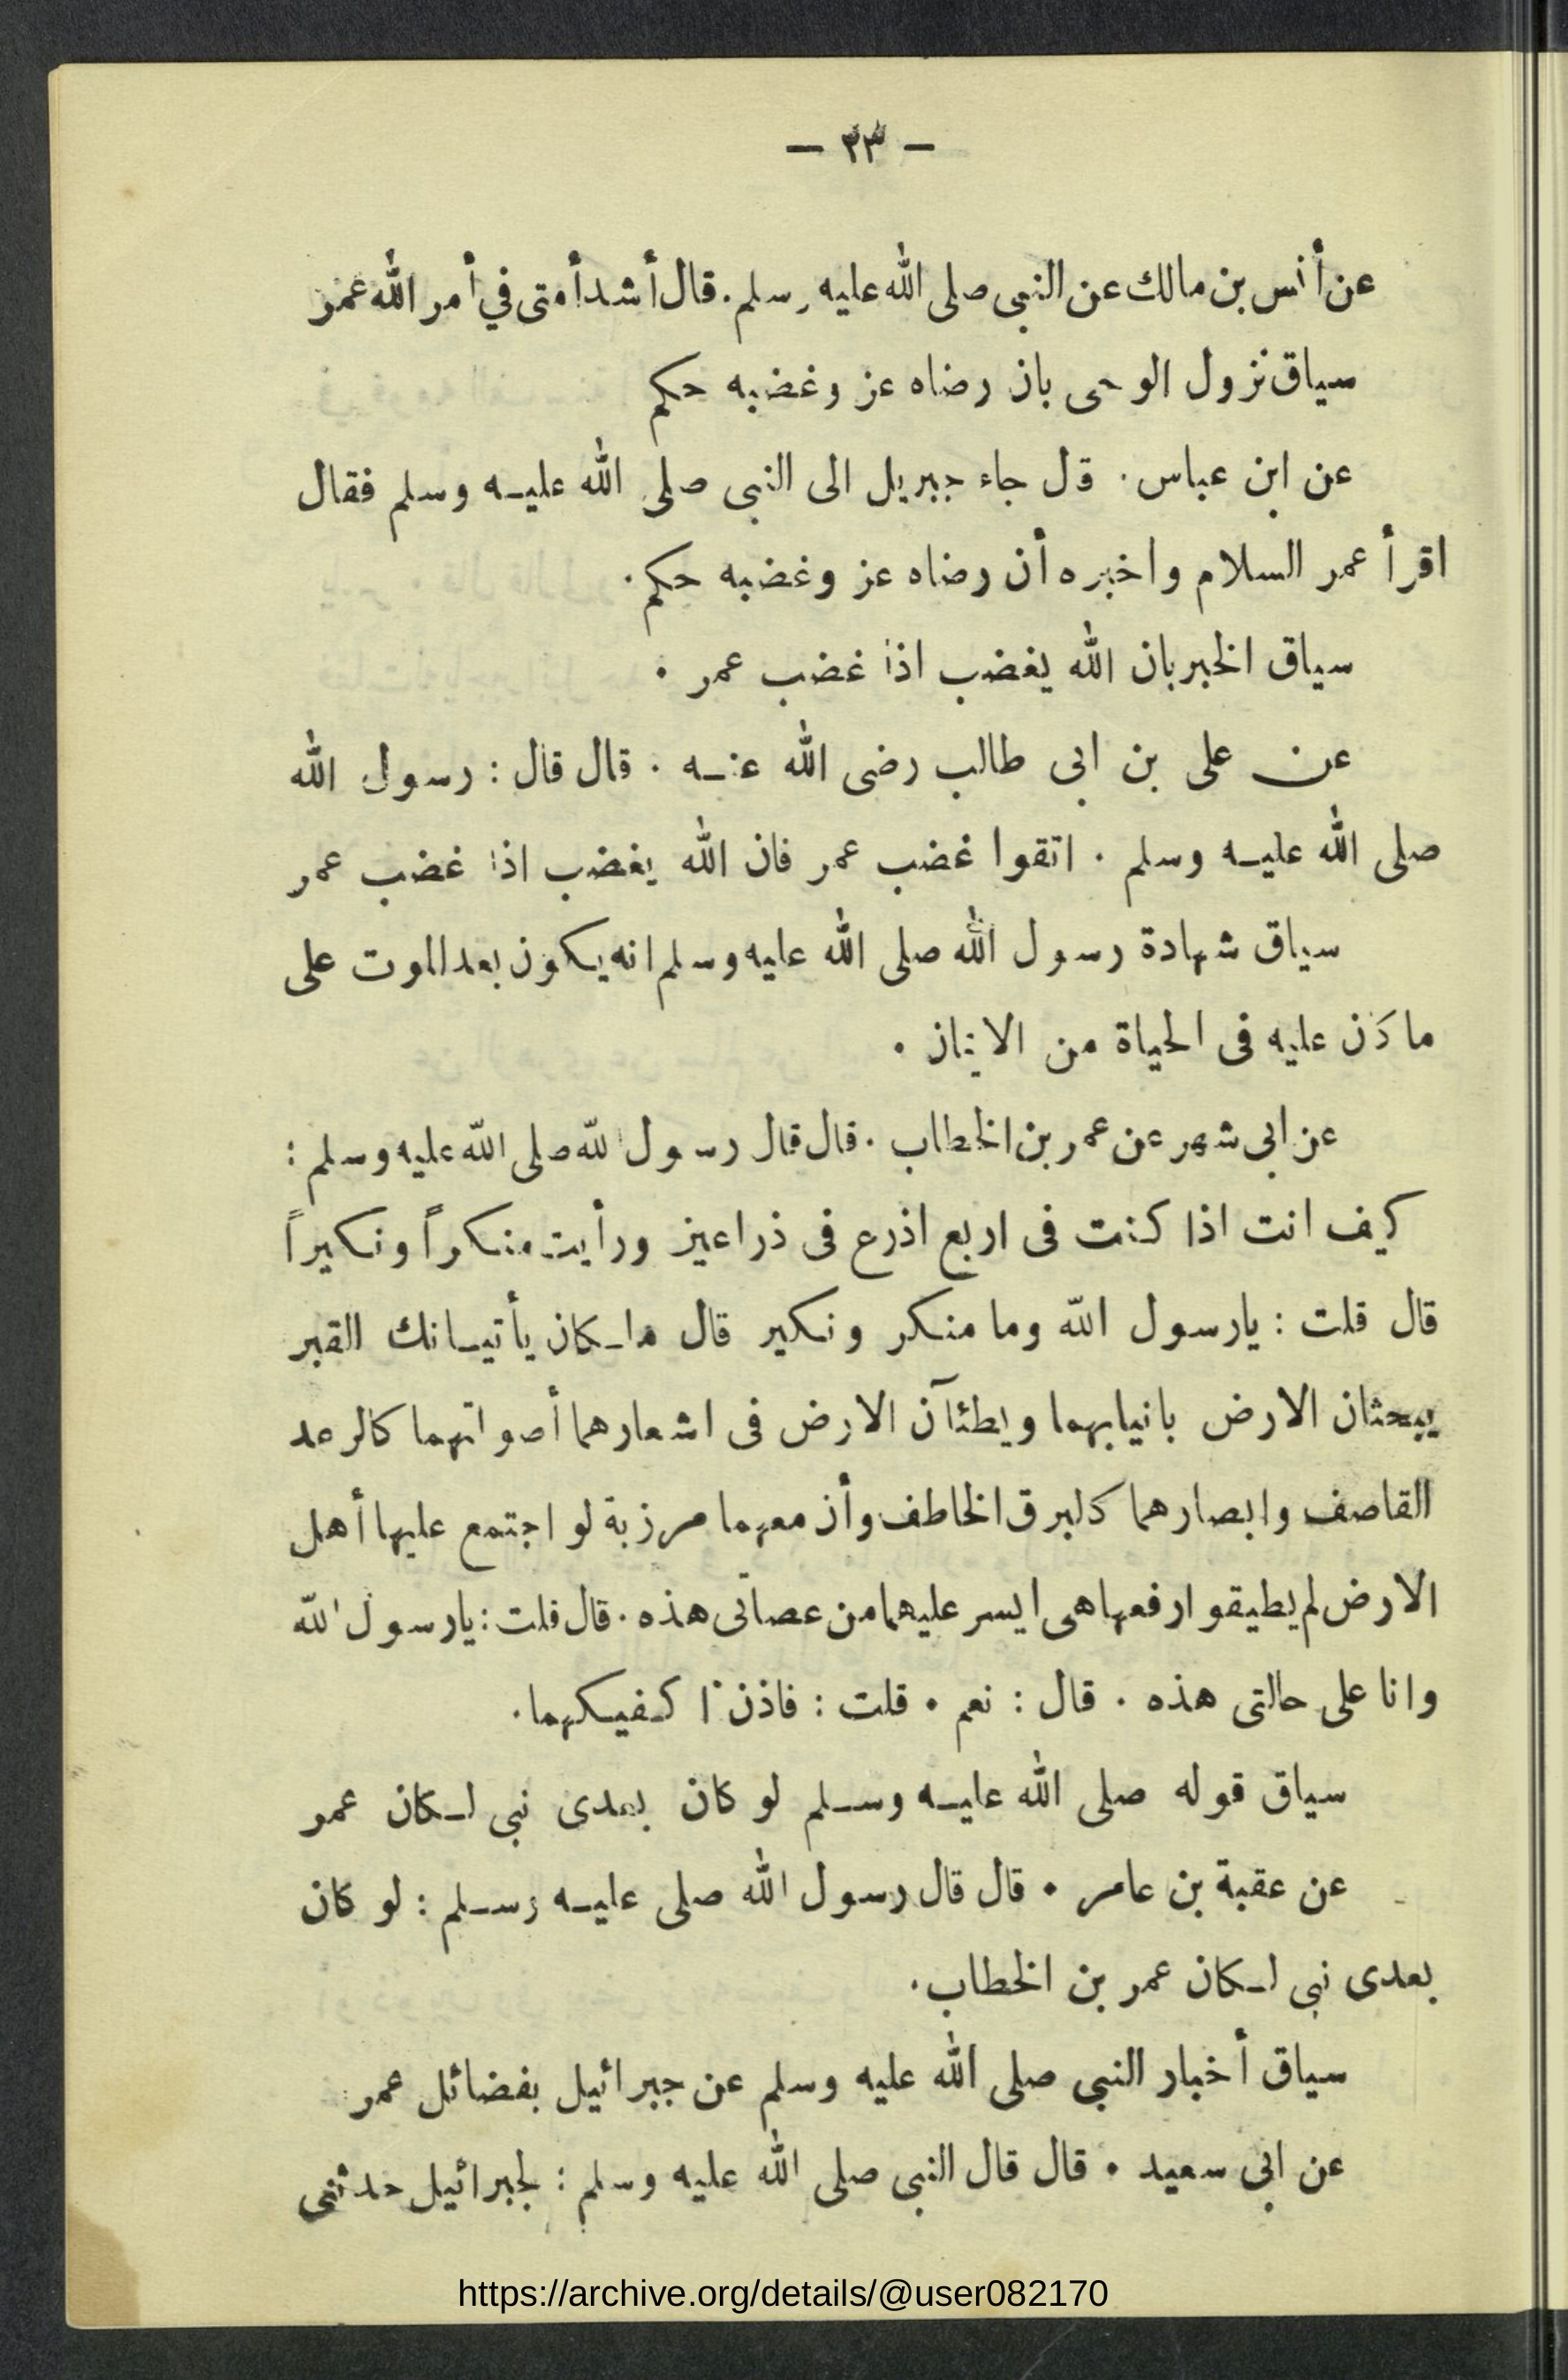 — ٢٣ —
عن أنس بن مالك عن النبى صلى الله عليه وسلم. قال أشد أمتى في أمر الله عمر
سياق نزول الوحى بان رضاه عز وغضبه حكم
عن ابن عباس. قل جاء جبريل الى النبى صلى الله عليه وسلم فقال
اقرأ عمر السلام واخبره أن رضاه عز وغضبه حكم.
سياق الخبر بان الله يغضب اذا غضب عمر .
عن على بن ابى طالب رضى الله عنه . قال قال : رسول الله
صلى الله عليه وسلم . اتقوا غضب عمر فان الله يغضب اذا غضب عمر
سياق شهادة رسول الله صلى الله عليه وسلم انه يكون بعد الموت على
ما كان عليه فى الحياة من الايمان .
عن ابى شهر عن عمر بن الخطاب . قال قال رسول الله صلى الله عليه وسلم :
كيف انت اذا كنت فى اربع اذرع فى ذراعين ورأيت منكراً ونكيراً
قال قلت : يارسول الله وما منكر ونكير قال ملكان يأتيانك القبر
يبحثان الارض بانيابهما ويطئآن الارض فى اشعارهما أصواتهما كالرعد
القاصف وابصارهما كالبرق الخاطف وأن معهما مرزبة لو اجتمع عليها أهل
الارض لم يطيقوا رفعها هى ايسر عليهما من عصاتى هذه . قال قلت : يارسول الله
وانا على حالتى هذه . قال : نعم . قلت : فاذن اكفيكهما .
سياق قوله صلى الله عليه وسلم لو كان بعدى نبى لكان عمر
عن عقبة بن عامر . قال قال رسول الله صلى عليه وسلم : لو كان
بعدى نبى لكان عمر بن الخطاب .
سياق أخبار النبى صلى الله عليه وسلم عن جبرائيل بفضائل عمر
عن ابى سعيد . قال قال النبى صلى الله عليه وسلم : لجبرائيل حدثنى
https://archive.org/details/@user082170